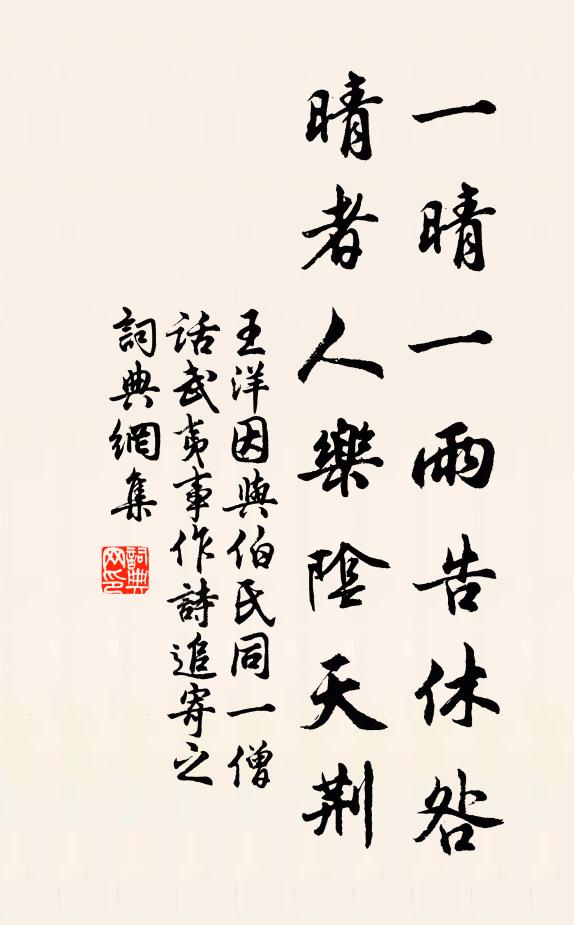 一晴一雨告休咎
晴者人樂陰天荆
王洋因與伯氏同一僧
話武夷事作詩追寄之
詞典網集
詞典
网印